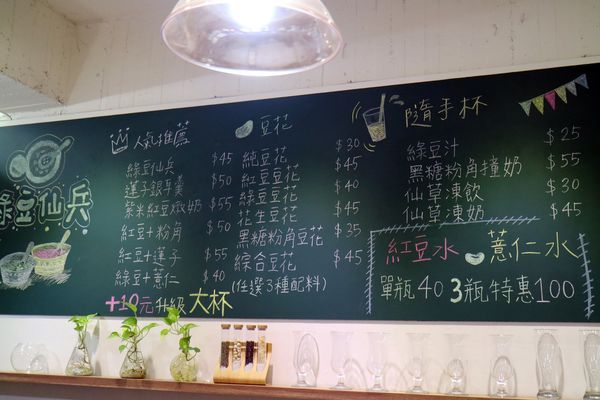 綠豆仙兵
人氣推薦
綠豆仙兵 $45
蓮子銀耳羹 $50
紫米紅豆燉奶 $55
紅豆+粉角 $45
紅豆+蓮子 $55
綠豆+薏仁 $40
+10元升級大杯
豆花
純豆花 $30
紅豆豆花 $45
綠豆豆花 $40
花生豆花 $45
黑糖粉角豆花 $35
綜合豆花 $45
(任選3種配料)
隨手杯
綠豆汁 $25
黑糖粉角撞奶 $55
仙草凍飲 $30
仙草凍奶 $45
紅豆水 薏仁水
單瓶40 3瓶特惠100